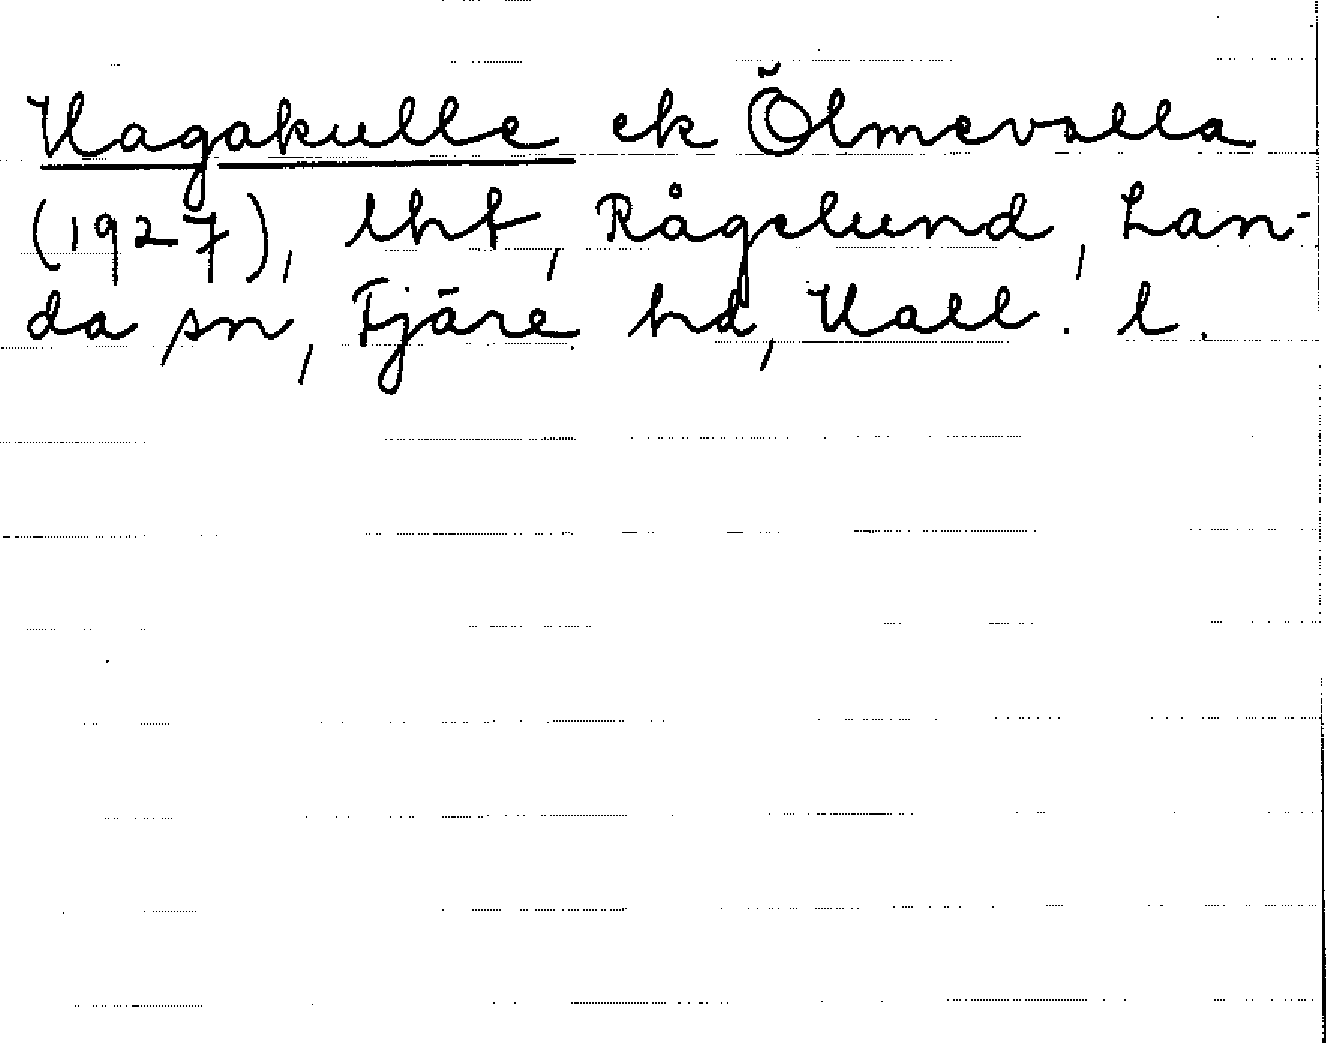 Hagakulle ek Ölmevalla
(1927), lht, Rågelund, Lan-
da sn, Fjäre hd, Hall. l.